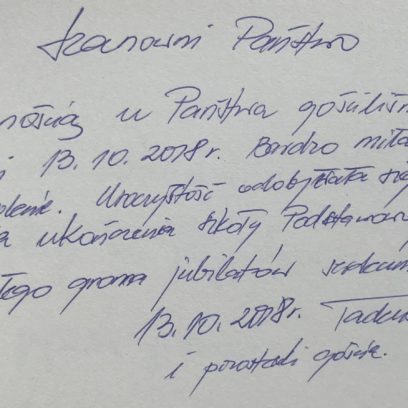 Szanowni Państwo
u Państwa gościliśm
13.10.2018r. Bardzo miła
Uroczystość odbywała się
ukończenia szkoły Podstawow
grona jubilatów
13.10.2018r. Tade
i pozostali goście.